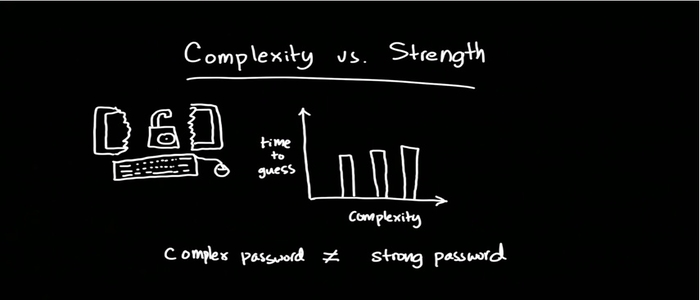 Complexity vs. Strength
time
to
guess
Complexity
Complex password ≠ strong password